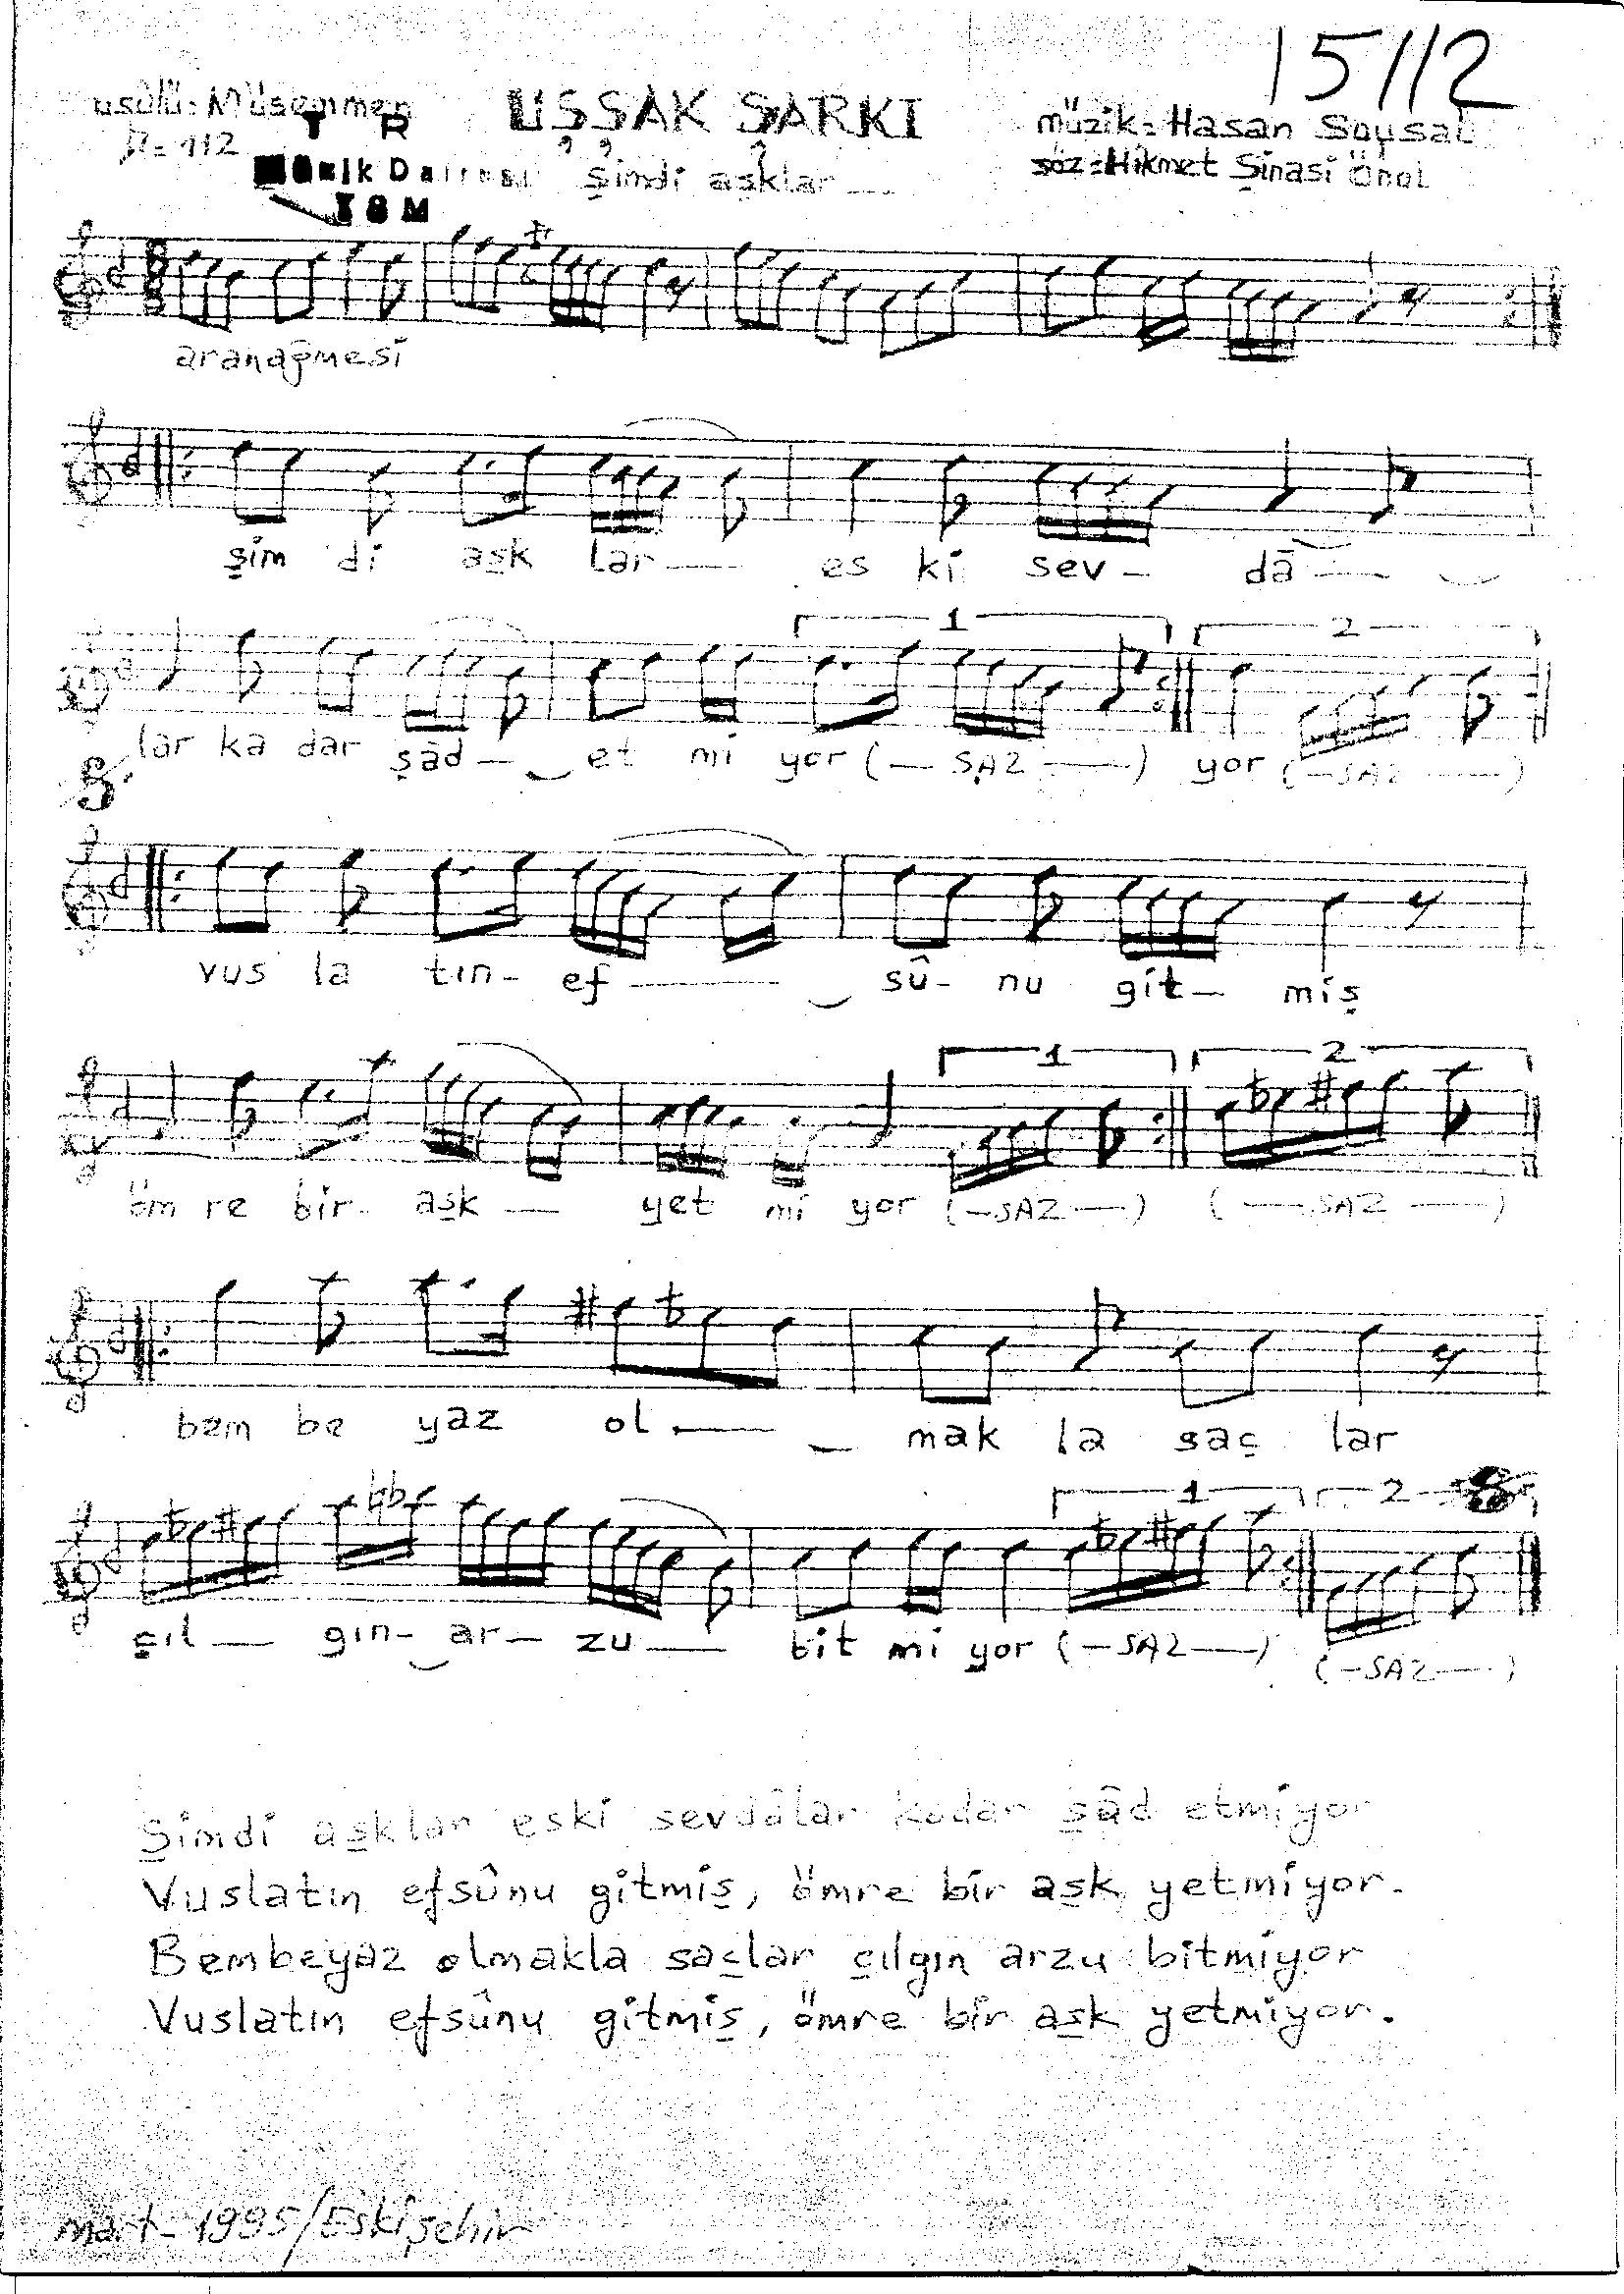 15112
usûlü: Müsemmen
UŞŞAK ŞARKI
müzik: Hasan Soysal
= 112
T R
Müzik Dairesi
Şimdi aşklar
söz: Hikmet Şinasi Önol
TSM
8
8
aranağmesi
şim di aşk lar — es ki sev — dâ —
1 2
lar ka dar şâd — et mi yor (— SAZ —) yor (— SAZ —)
vus la tın- ef — sû- nu git — miş
1 2
öm re bir- aşk — yet mi yor (— SAZ —) (— SAZ —)
bem be yaz ol — mak la saç lar
1 2
çıl — gın- ar — zu — bit mi yor (— SAZ —) (— SAZ —)
Şimdi aşklar eski sevdâlar kadar şâd etmiyor
Vuslatın efsûnu gitmiş, ömre bir aşk yetmiyor.
Bembeyaz olmakla saçlar çılgın arzu bitmiyor
Vuslatın efsûnu gitmiş, ömre bir aşk yetmiyor.
mart- 1995/Eskişehir